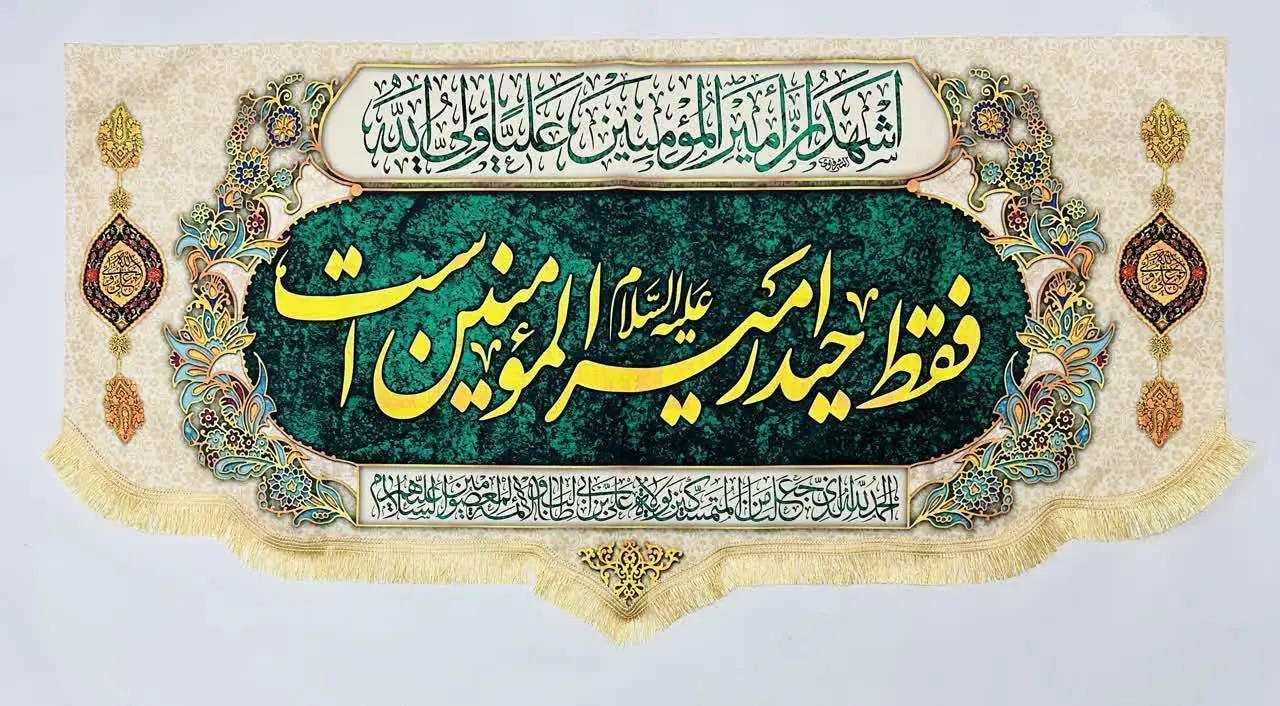 اشهد ان أمیر المؤمنین علیا ولی الله
فقط حیدر امیر المؤمنین است
علیه السلام
الحمد لله الذی جعلنا من المتمسکین بولایة علی بن ابی طالب و الائمة المعصومین علیهم السلام